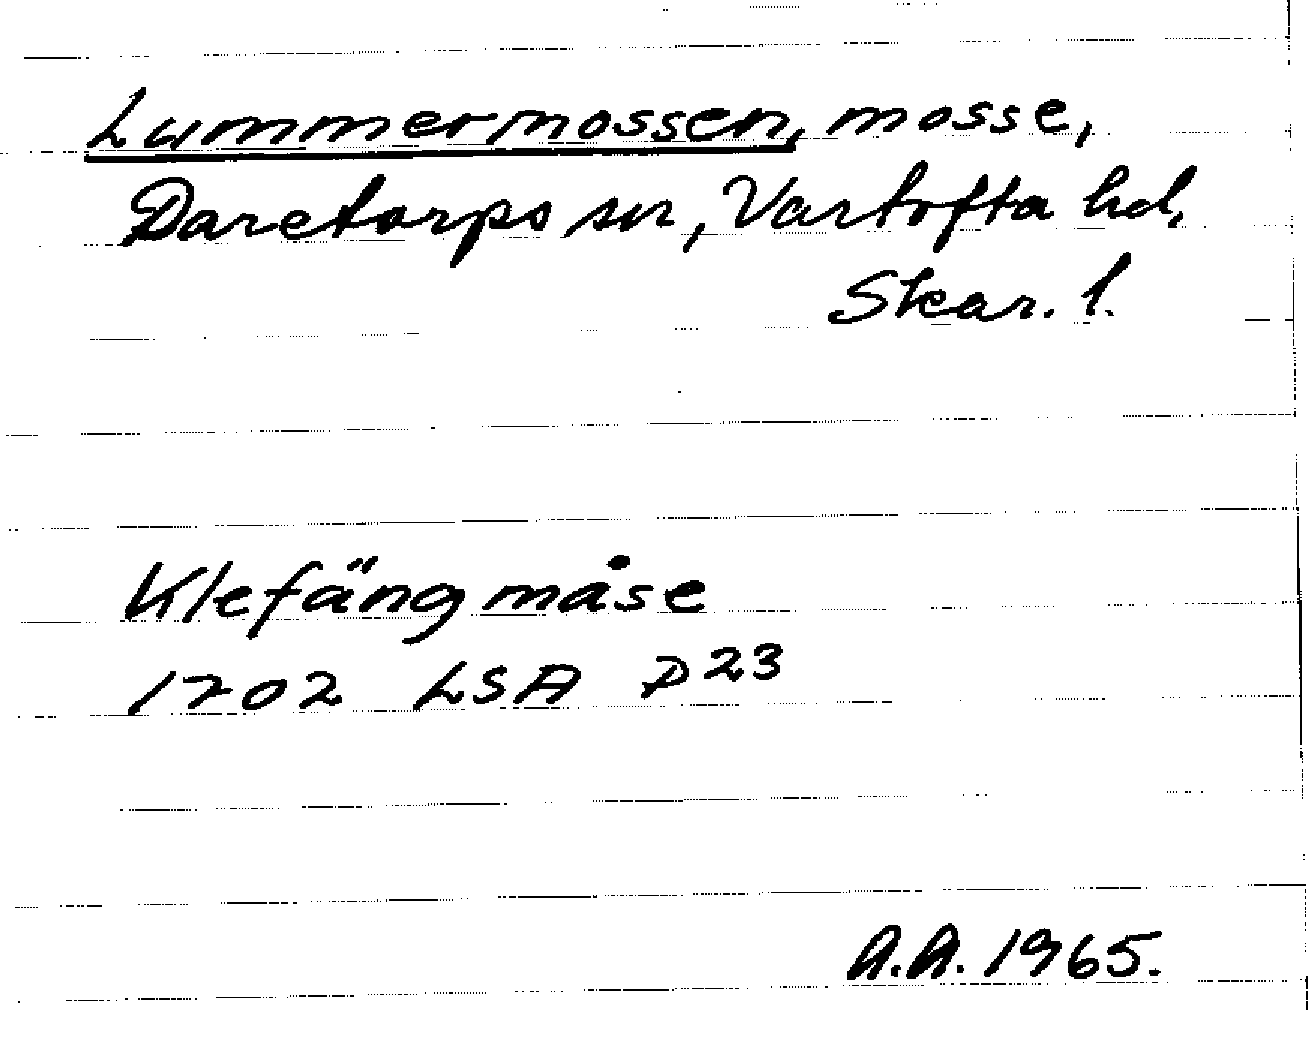 Lummermossen, mosse,
Daretorps sn, Vartofta hd,
Skar. l.
Klefäng måse
1702 LSA P23
A.A. 1965.